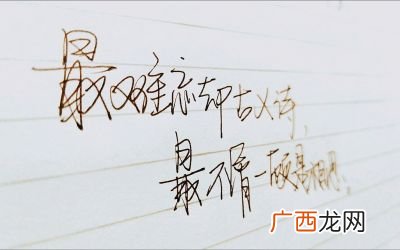 最难忘却古人诗,
最不屑一顾是相思.
广西龙网